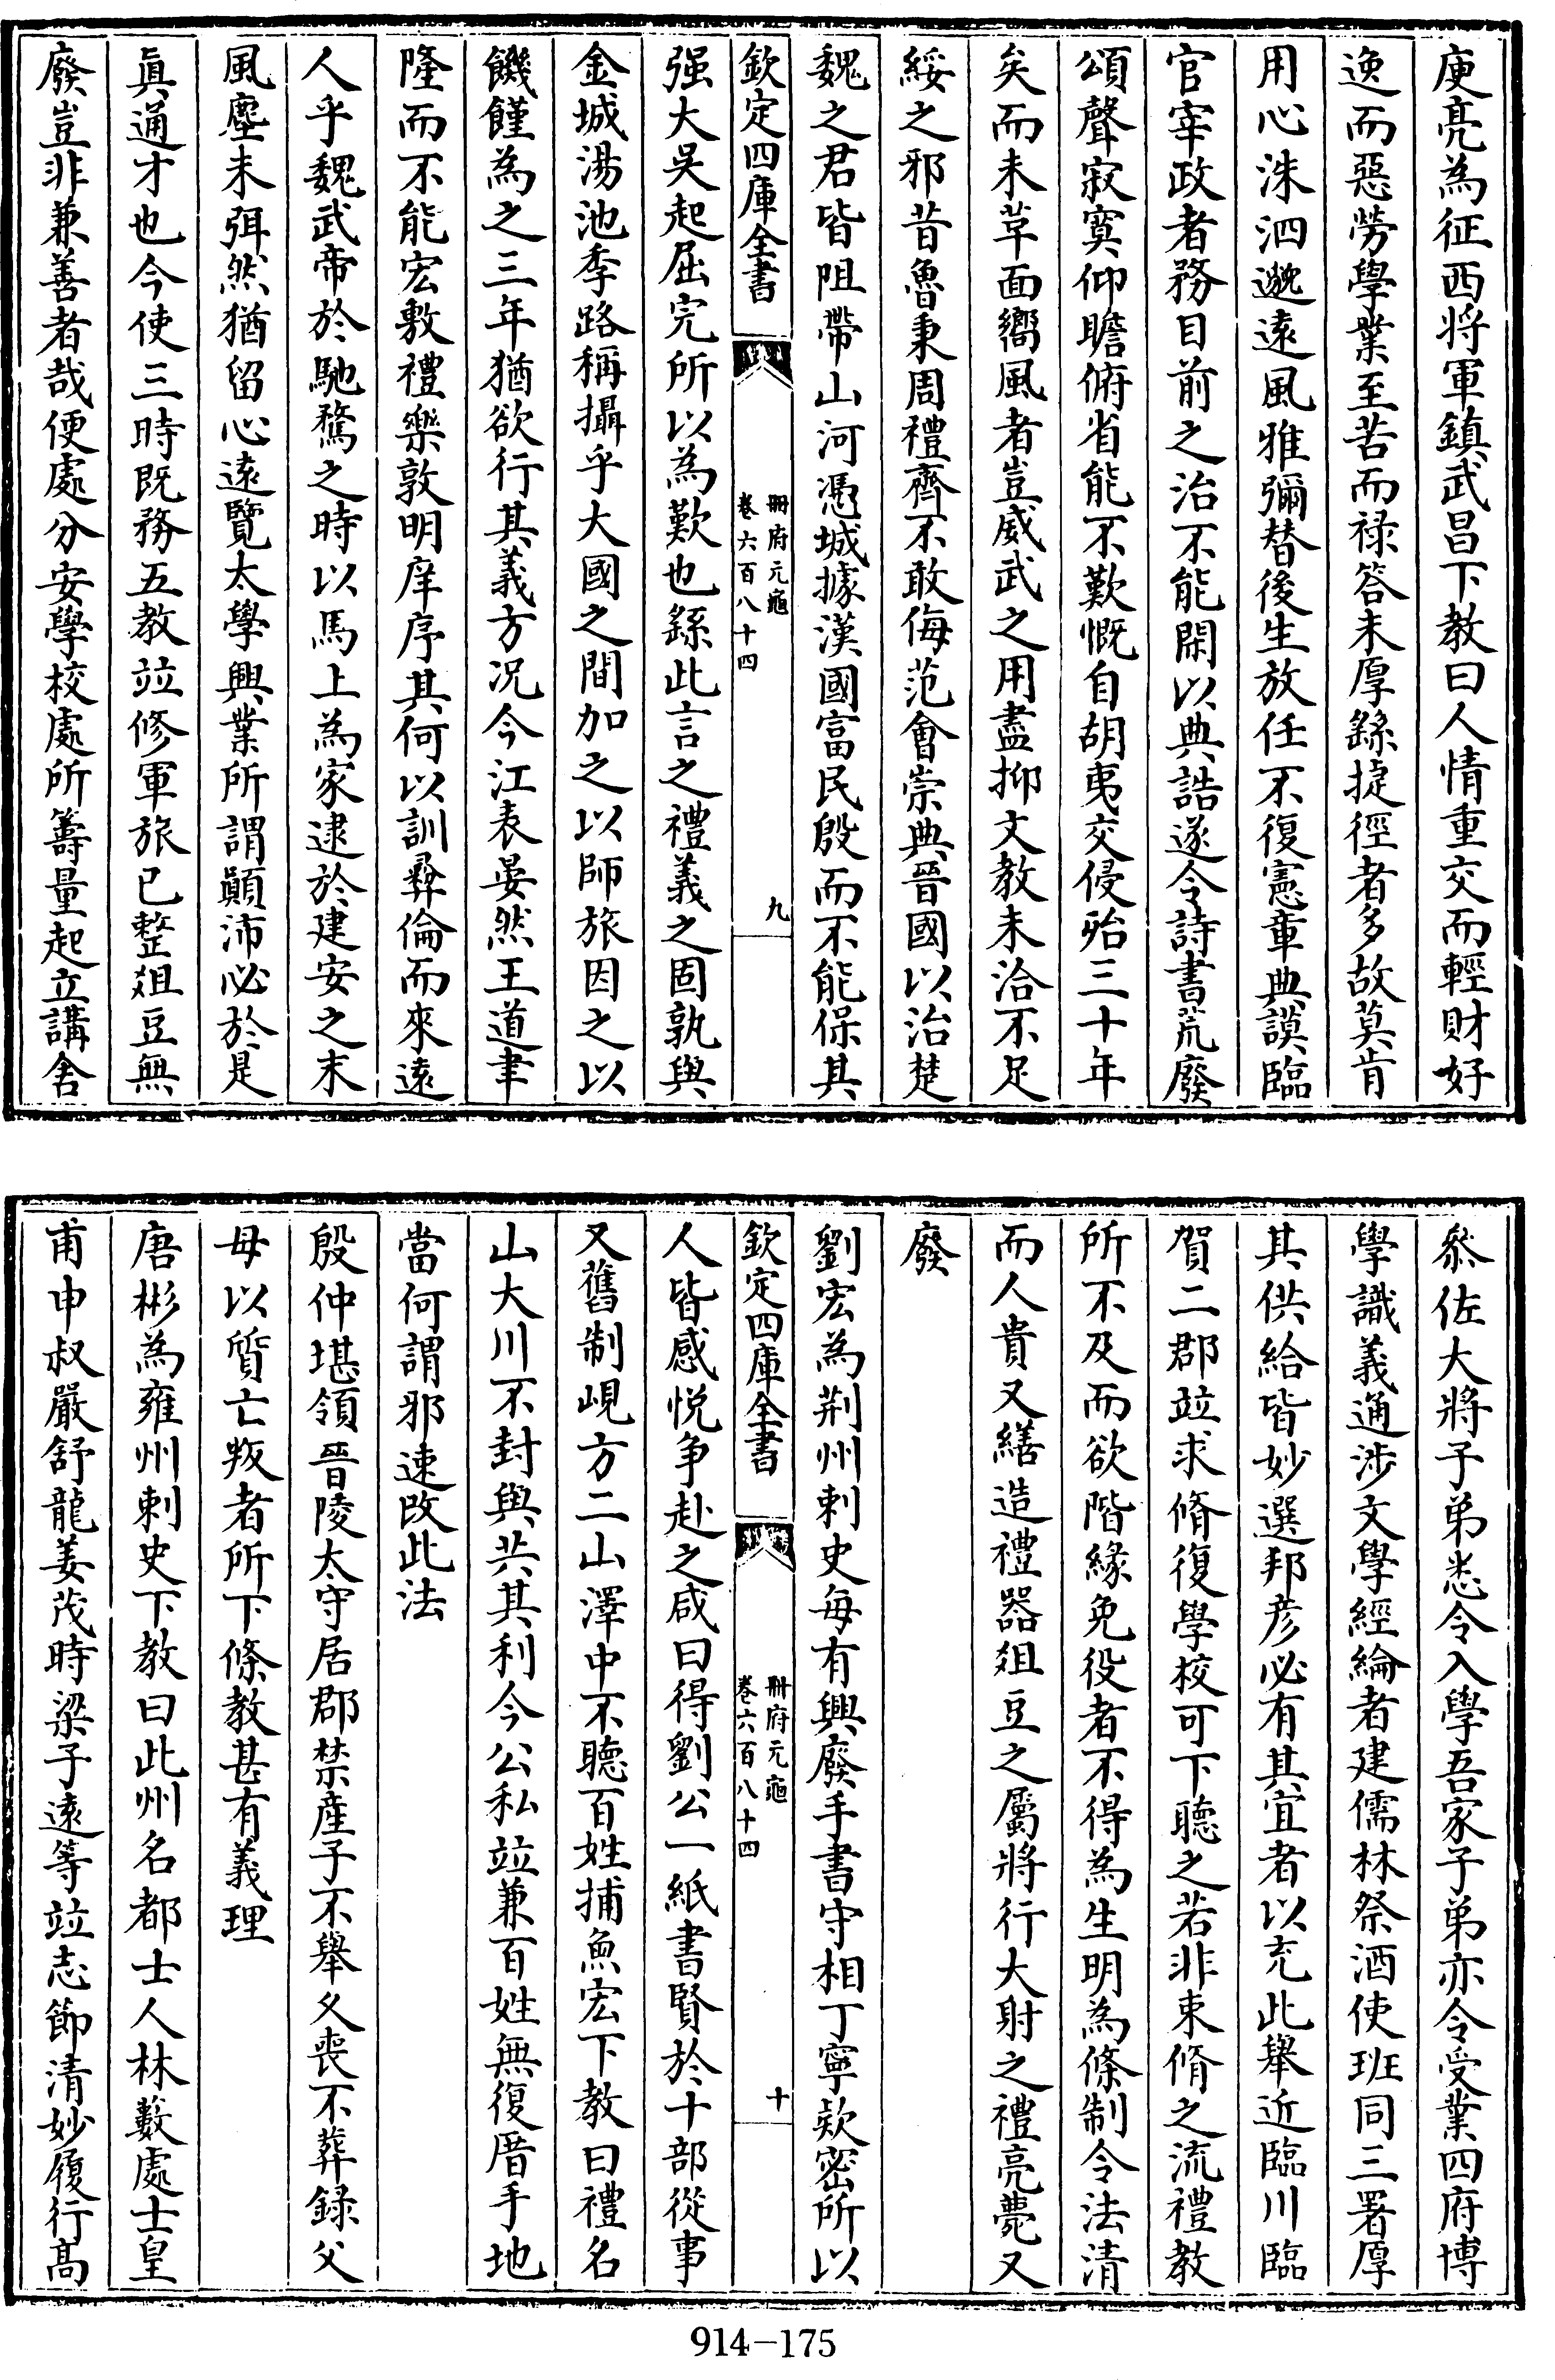 庾亮為征西將軍鎮武昌下教曰人情重交而輕財好
逸而惡勞學業至苦而祿答未厚繇捷徑者多故莫肯
用心洙泗邈遠風雅彌替後生放任不復憲章典謨臨
官宰政者務目前之治不能閑以典誥遂令詩書荒廢
頌聲寂寞仰瞻俯省能不歎慨自胡夷交侵殆三十年
矣而未革面嚮風者豈威武之用盡抑文教未洽不足
綏之邪昔魯秉周禮齊不敢侮范會崇典晉國以治楚
魏之君皆阻帶山河憑城據漢國富民殷而不能保其
欽定四庫全書
冊府元龜
卷六百八十四
九
强大吳起屈完所以為歎也繇此言之禮義之固孰與
金城湯池季路稱攝乎大國之間加之以師旅因之以
饑饉為之三年猶欲行其義方况今江表晏然王道聿
隆而不能宏敷禮樂敦明庠序其何以訓彝倫而來遠
人乎魏武帝於馳騖之時以馬上為家逮於建安之末
風塵未弭然猶留心遠覽太學興業所謂顛沛必於是
眞通才也今使三時既務五教竝修軍旅已整俎豆無
廢豈非兼善者哉便處分安學校處所籌量起立講舍
叅佐大將子弟悉令入學吾家子弟亦令受業四府博
學識義通涉文學經綸者建儒林祭酒使班同三署厚
其供給皆妙選邦彦必有其宜者以充此舉近臨川臨
賀二郡竝求脩復學校可下聽之若非束脩之流禮教
所不及而欲階緣免役者不得為生明為條制令法清
而人貴又繕造禮器俎豆之屬將行大射之禮亮薨又
廢
劉宏為荆州刺史每有興廢手書守相丁寧欵密所以
欽定四庫全書
冊府元龜
卷六百八十四
十
人皆感悅争赴之咸曰得劉公一紙書賢於十部從事
又舊制峴方二山澤中不聽百姓捕魚宏下教曰禮名
山大川不封與共其利今公私竝兼百姓無復厝手地
當何謂邪速改此法
殷仲堪領晉陵太守居郡禁産子不舉久喪不葬録父
母以質亡叛者所下條教甚有義理
唐彬為雍州刺史下教曰此州名都士人林藪處士皇
甫申叔嚴舒龍姜茂時梁子遠等竝志節清妙履行高
914-175